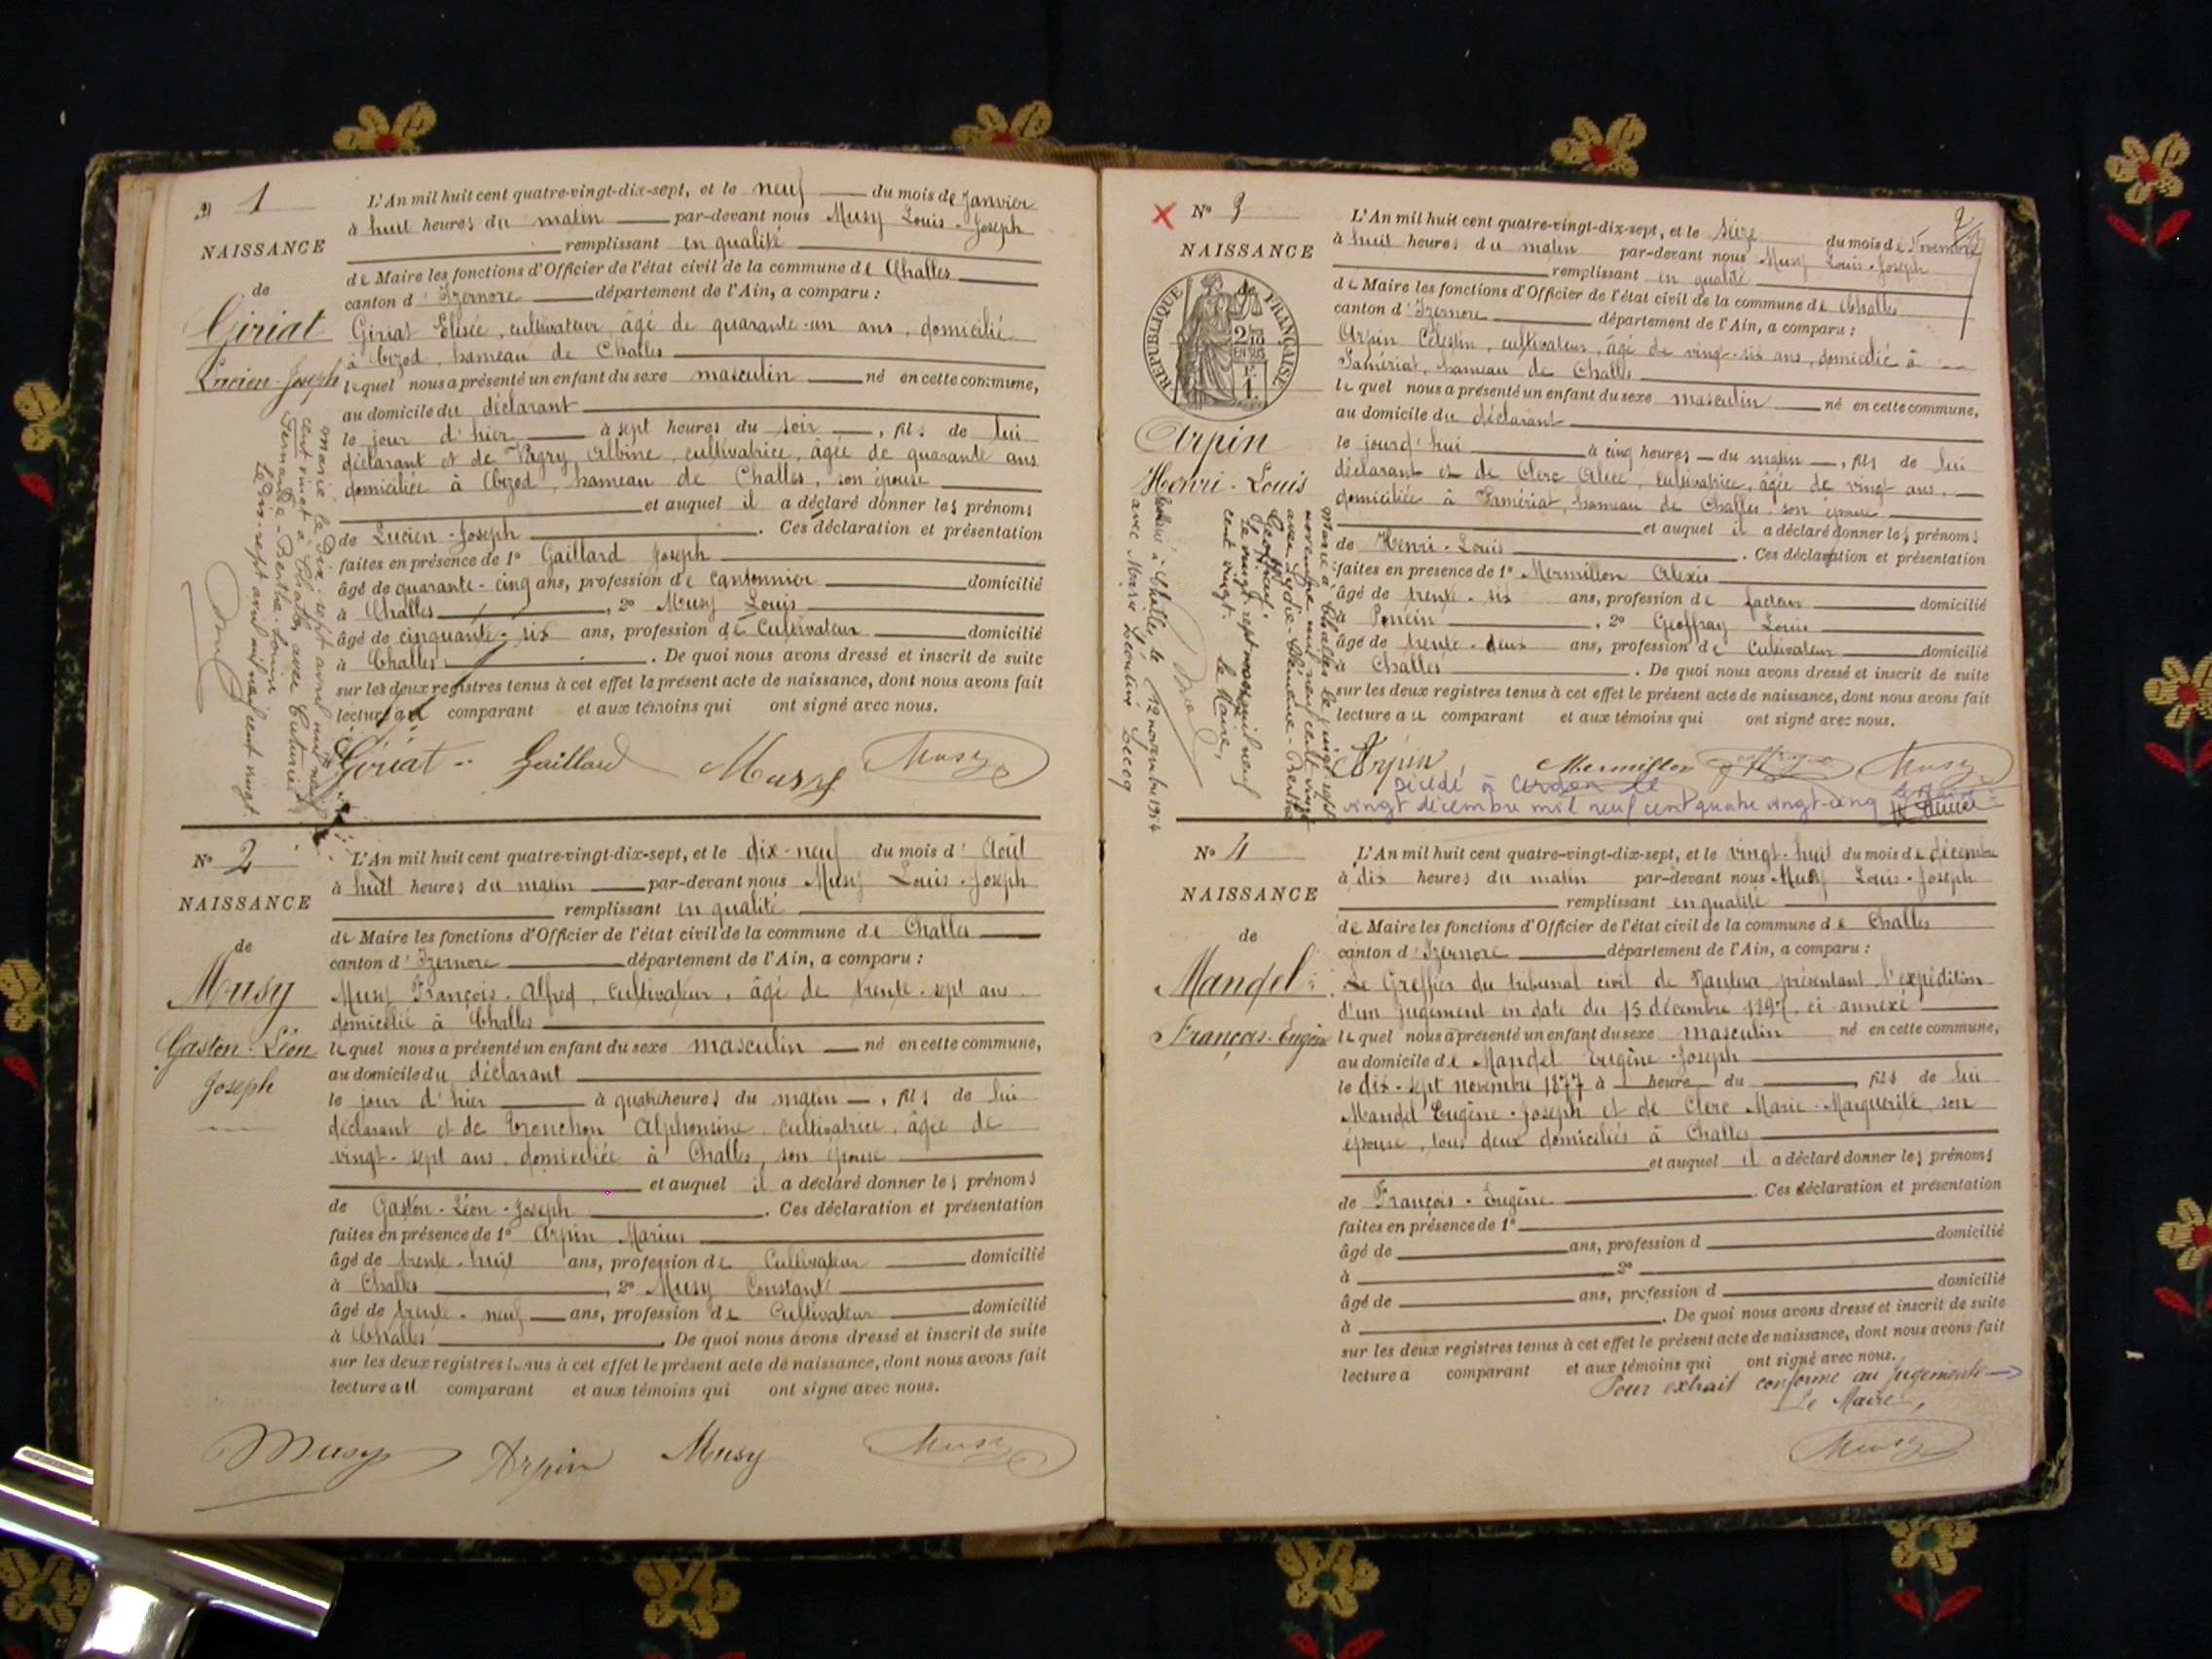 N° 1
NAISSANCE
de
Giriat
Lucien-Joseph
L'An mil huit cent quatre-vingt-dix-sept, et le neuf du mois de Janvier
à huit heures du matin par-devant nous Musy Louis-Joseph
remplissant en qualité
de Maire les fonctions d'Officier de l'état civil de la commune de Challes
canton d'Izernore département de l'Ain, a comparu :
Giriat Elisée, cultivateur, âgé de quarante-un ans, domicilié
à Cizod, hameau de Challes
lequel nous a présenté un enfant du sexe masculin né en cette commune,
au domicile du déclarant
le jour d'hier à sept heures du soir, fils de lui
déclarant et de Albine, cultivatrice, âgée de quarante ans
domiciliée à Cizod, hameau de Challes, son épouse
et auquel il a déclaré donner les prénoms
de Lucien-Joseph. Ces déclaration et présentation
faites en présence de 1° Gaillard Joseph
âgé de quarante-cinq ans, profession de cantonnier domicilié
à Challes, 2° Musy Louis
âgé de cinquante-six ans, profession de cultivateur domicilié
à Challes. De quoi nous avons dressé et inscrit de suite
sur les deux registres tenus à cet effet le présent acte de naissance, dont nous avons fait
lecture au comparant et aux témoins qui ont signé avec nous.
Giriat Gaillard Musy Musy
Marié le dix-sept avril mil neuf
cent vingt à Challes avec
Fernande-Berthe-Louise
Le dix-sept avril mil neuf cent vingt.
N° 2
NAISSANCE
de
Musy
Gaston-Léon
Joseph
L'An mil huit cent quatre-vingt-dix-sept, et le dix-neuf du mois d'Août
à huit heures du matin par-devant nous Musy Louis-Joseph
remplissant en qualité
de Maire les fonctions d'Officier de l'état civil de la commune de Challes
canton d'Izernore département de l'Ain, a comparu :
Musy François-Alfred, cultivateur, âgé de trente-sept ans
domicilié à Challes
lequel nous a présenté un enfant du sexe masculin né en cette commune,
au domicile du déclarant
le jour d'hier à quatre heures du matin, fils de lui
déclarant et de Tronchon Alphonsine, cultivatrice, âgée de
vingt-sept ans, domiciliée à Challes, son épouse
et auquel il a déclaré donner les prénoms
de Gaston-Léon-Joseph. Ces déclaration et présentation
faites en présence de 1° Arpin Marius
âgé de trente-huit ans, profession de Cultivateur domicilié
à Challes, 2° Musy Constant
âgé de trente-neuf ans, profession de Cultivateur domicilié
à Challes. De quoi nous avons dressé et inscrit de suite
sur les deux registres tenus à cet effet le présent acte de naissance, dont nous avons fait
lecture au comparant et aux témoins qui ont signé avec nous.
Musy Arpin Musy Musy
2
N° 3
NAISSANCE
de
RÉPUBLIQUE FRANÇAISE
2/10
EN SUS
1
Arpin
Henri-Louis
L'An mil huit cent quatre-vingt-dix-sept, et le seize du mois de Novembre
à huit heures du matin par-devant nous Musy Louis-Joseph
remplissant en qualité
de Maire les fonctions d'Officier de l'état civil de la commune de Challes
canton d'Izernore département de l'Ain, a comparu :
Arpin Célestin, cultivateur, âgé de vingt-six ans, domicilié à
Samériat, hameau de Challes
lequel nous a présenté un enfant du sexe masculin né en cette commune,
au domicile du déclarant
le jourd'hui à cinq heures du matin, fils de lui
déclarant et de Clerc Alice, cultivatrice, âgée de vingt ans,
domiciliée à Samériat, hameau de Challes, son épouse
et auquel il a déclaré donner les prénoms
de Henri-Louis. Ces déclaration et présentation
faites en présence de 1° Mermillon Alexis
âgé de trente-six ans, profession de facteur domicilié
à Poncin, 2° Geoffray Louis
âgé de trente-deux ans, profession de Cultivateur domicilié
à Challes. De quoi nous avons dressé et inscrit de suite
sur les deux registres tenus à cet effet le présent acte de naissance, dont nous avons fait
lecture au comparant et aux témoins qui ont signé avec nous.
Arpin Mermillon Musy
Décédé à Cerdon le
vingt décembre mil neuf cent quatre vingt-cinq Le Maire
Marié à Challes le vingt-sept
novembre mil neuf cent vingt
avec Lydie-Clémence-Berthe
Geoffray.
Le vingt sept novembre mil neuf
cent vingt. Le Maire,
à Challes, le 12 novembre 1954
avec Marie Léontine
N° 4
NAISSANCE
de
Mandel
François-Eugène
L'An mil huit cent quatre-vingt-dix-sept, et le vingt-huit du mois de décembre
à dix heures du matin par-devant nous Musy Louis-Joseph
remplissant en qualité
de Maire les fonctions d'Officier de l'état civil de la commune de Challes
canton d'Izernore département de l'Ain, a comparu :
Le Greffier du tribunal civil de Nantua présentant l'expédition
d'un jugement en date du 15 décembre 1897, ci-annexé
lequel nous a présenté un enfant du sexe masculin né en cette commune,
au domicile de Mandel Eugène-Joseph
le dix-sept novembre 1877 à heure du, fils de lui
Mandel Eugène-Joseph et de Clerc Marie-Marguerite, son
épouse, tous deux domiciliés à Challes
et auquel il a déclaré donner les prénoms
de François-Eugène. Ces déclaration et présentation
faites en présence de 1°
âgé de ans, profession d domicilié
à 2°
âgé de ans, profession d domicilié
à. De quoi nous avons dressé et inscrit de suite
sur les deux registres tenus à cet effet le présent acte de naissance, dont nous avons fait
lecture a comparant et aux témoins qui ont signé avec nous.
Pour extrait conforme au jugement
Le Maire,
Musy